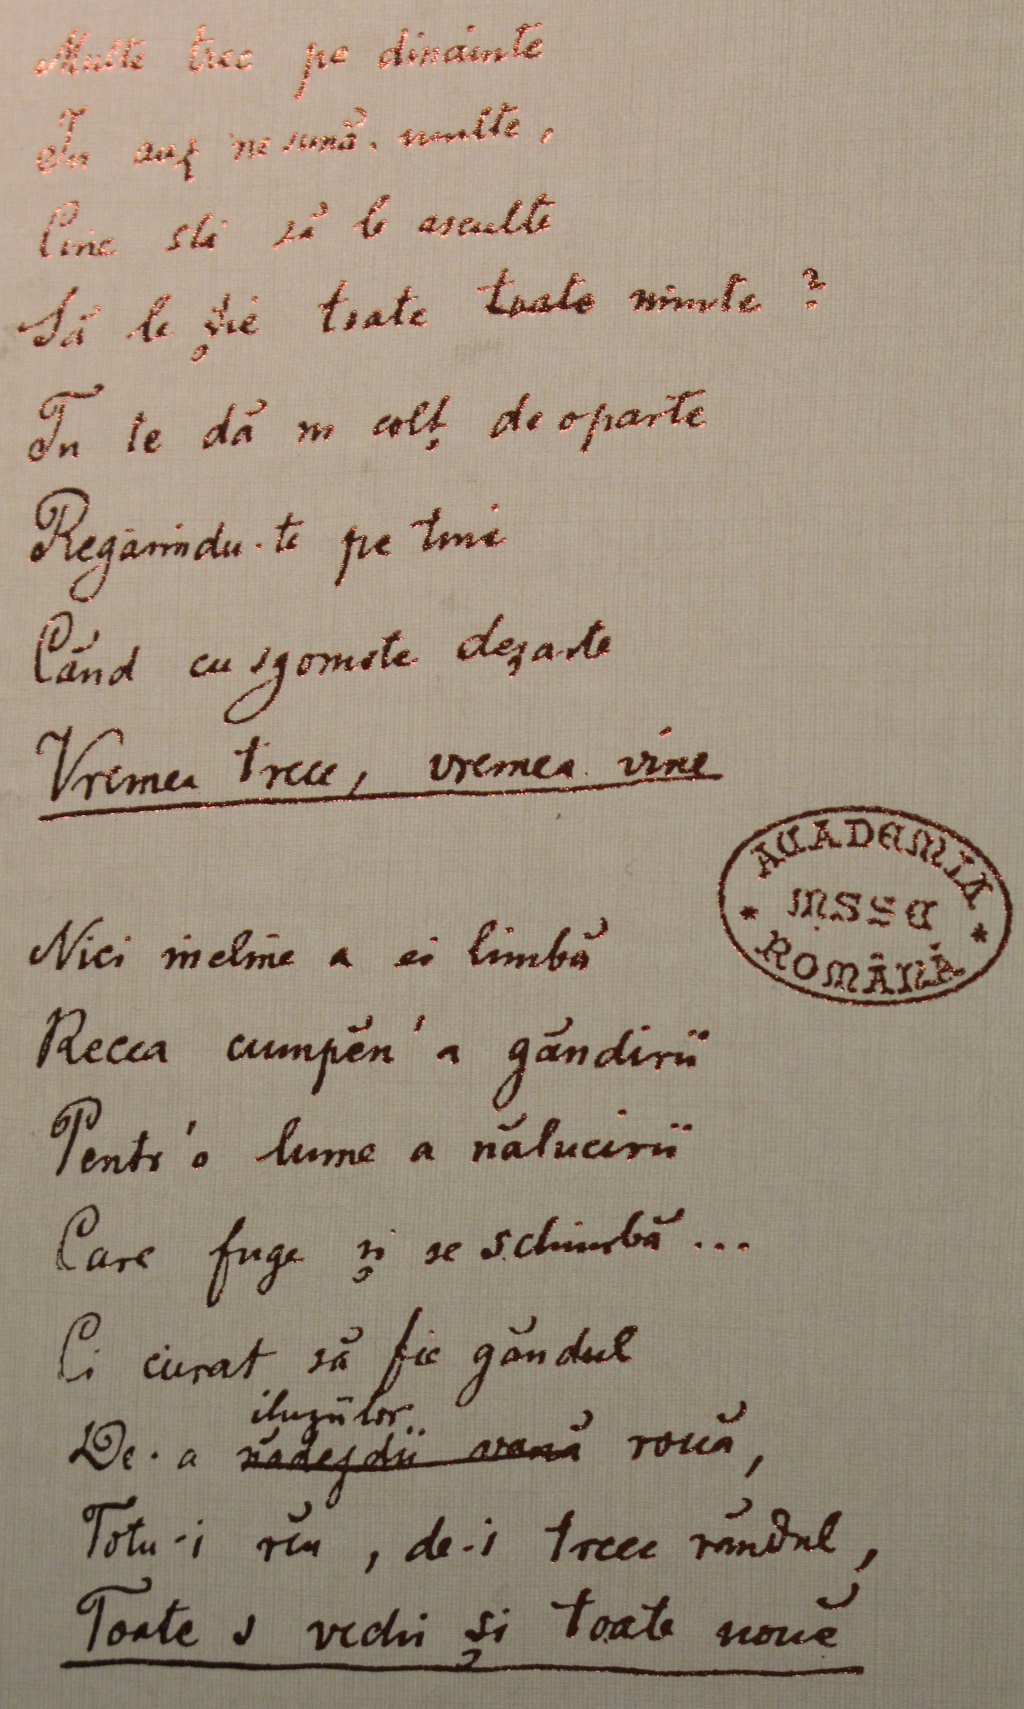 Multe trec pe dinainte
In auz ne sună multe,
Cine stă să le asculte
Să le ție toate toate minte?
Tu te dă în colț de oparte
Regăsindu-te pe tine
Când cu sgomote deșarte
Vremea trece, vremea vine
ACADEMIA
MSSE
ROMÂNĂ
Nici încline a ei limbă
Recea cumpĕn'a gândirii
Pentr'o lume a nălucirii
Care fuge și se schimbă...
Ci curat să fie gândul
iluziilor
De-a nădejdii vană rouă,
Totu-i rĕu, de-i trece rândul,
Toate s vechi și toate nouĕ